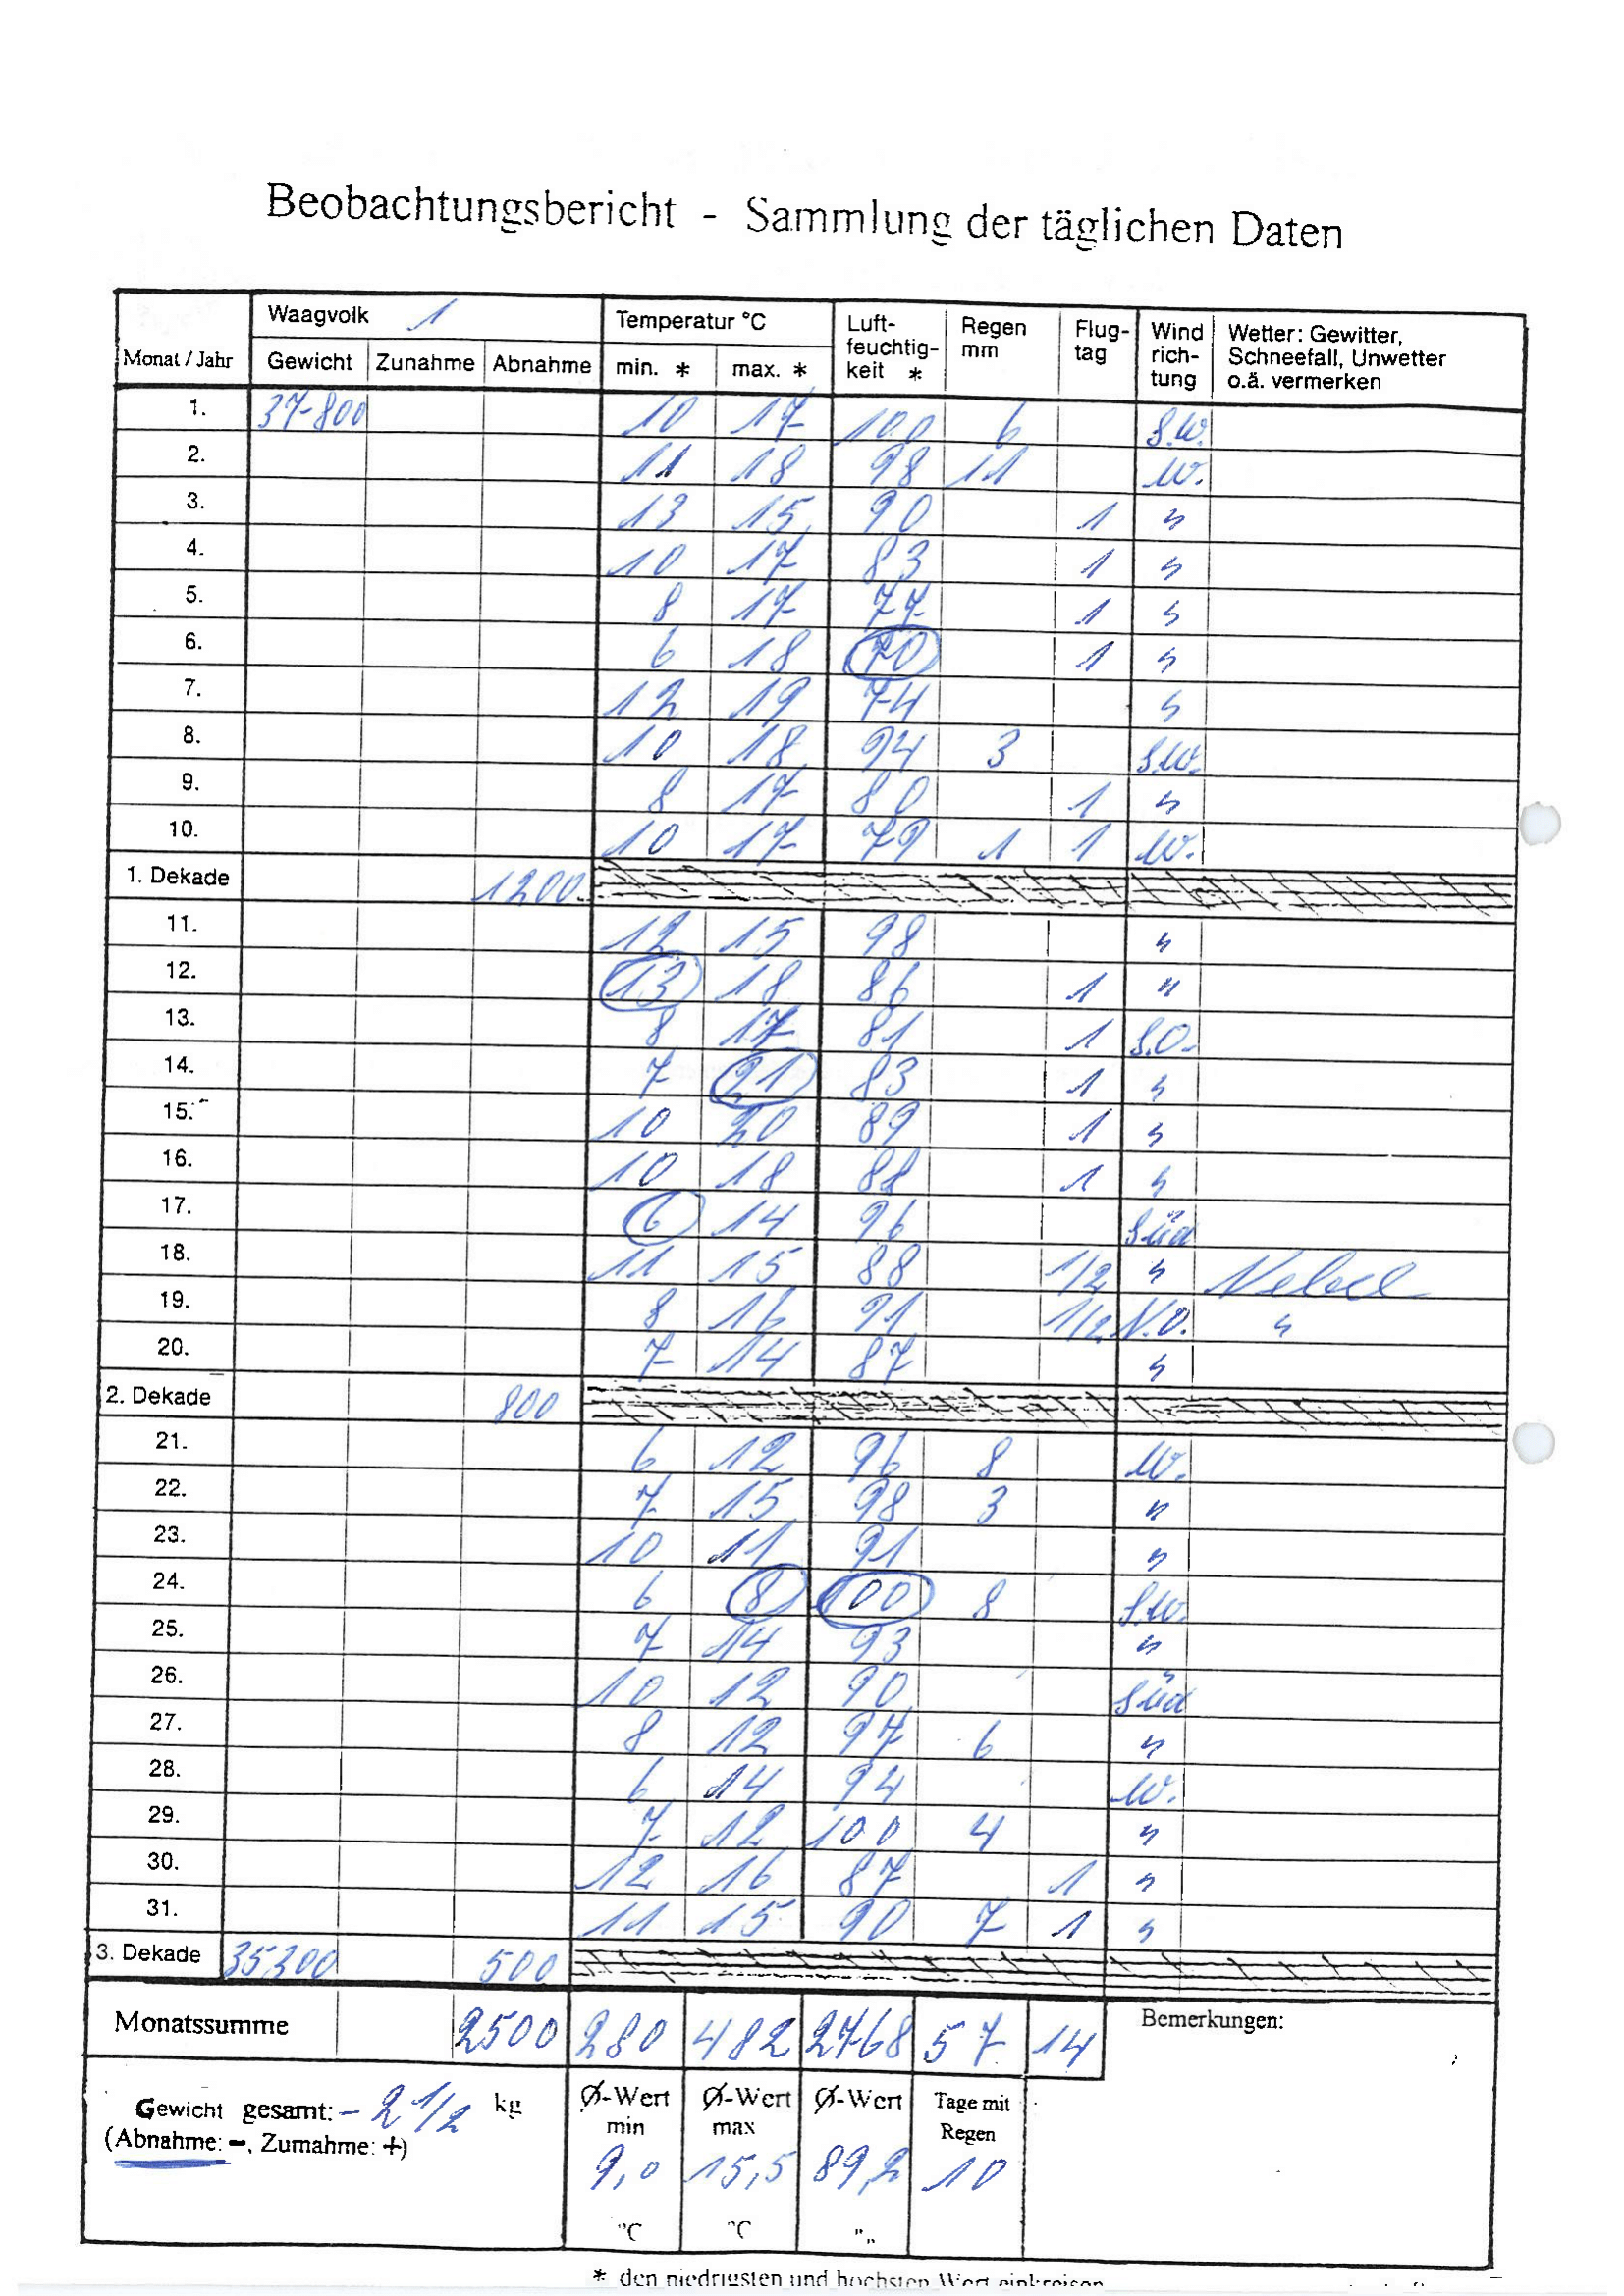 Beobachtungsbericht - Sammlung der täglichen Daten
Monat / Jahr Waagvolk 1 Temperatur °C Luft-feuchtig-keit * Regen mm Flug-tag Wind rich-tung Wetter: Gewitter, Schneefall, Unwetter o.ä. vermerken
Gewicht Zunahme Abnahme min. * max. *
1. 37-800 10 17 100 6 S.W.
2. 11 18 98 11 W.
3. 13 15 90 1 "
4. 10 17 83 1 "
5. 8 17 77 1 "
6. 6 18 70 1 "
7. 12 19 74 "
8. 10 18 94 3 S.W.
9. 8 17 80 1 "
10. 10 17 79 1 1 W.
1. Dekade 1200.
11. 12 15 98 "
12. 13 18 86 1 "
13. 8 17 81 1 S.O.
14. 7 21 83 1 "
15. 10 20 89 1 "
16. 10 18 88 1 "
17. 6 14 96 Süd
18. 11 15 88 1/2 " Nebel
19. 8 16 91 1/2 N.O. "
20. 7 14 87 "
2. Dekade 800
21. 6 12 96 8 W.
22. 7 15 98 3 "
23. 10 11 91 "
24. 6 8 100 8 S.W.
25. 7 14 93 "
26. 10 12 90 Süd
27. 8 12 97 6 "
28. 6 14 94 W.
29. 7 12 100 4 "
30. 12 16 87 1 "
31. 11 15 90 7 1 "
3. Dekade 35300 500
Monatssumme 2500 280 482 2768 57 14 Bemerkungen:
Gewicht gesamt: - 2 1/2 kg
(Abnahme: -, Zumahme: +)
Ø-Wert min Ø-Wert max Ø-Wert Tage mit Regen
9,0 15,5 89,2 10
°C °C "„
* den niedrigsten und höchsten Wert einkreisen